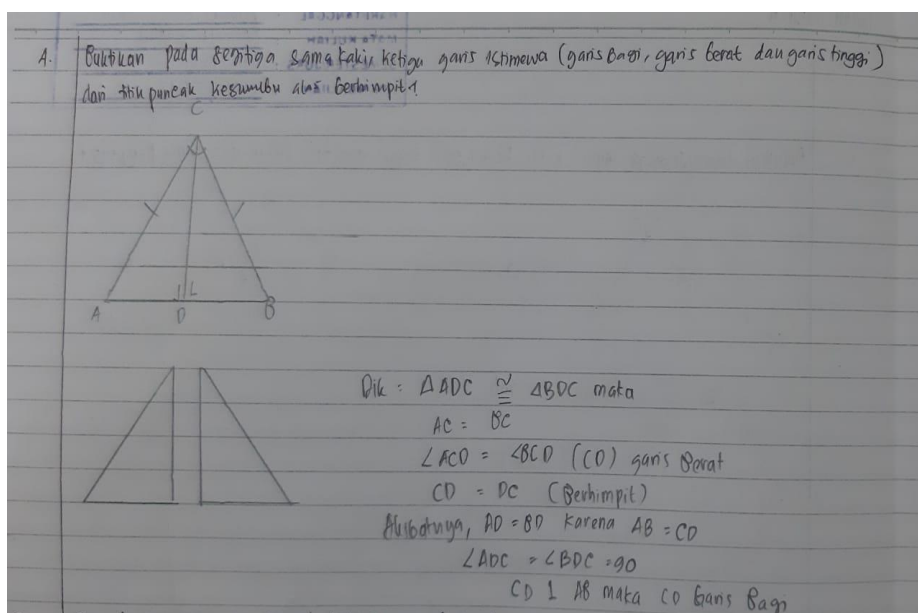 A. Buktikan pada segitiga sama kaki, ketiga garis istimewa (garis Bagi, garis berat dan garis tinggi)
dari titik puncak kesumbu alas berhimpit?
C
A D B
Dik = ΔADC ≅ ΔBDC maka
AC = BC
∠ACD = ∠BCD (CD) garis Berat
CD = DC (Berhimpit)
Akibatnya, AD = BD karena AB = CD
∠ADC = ∠BDC = 90
CD ⊥ AB maka CD Garis Bagi